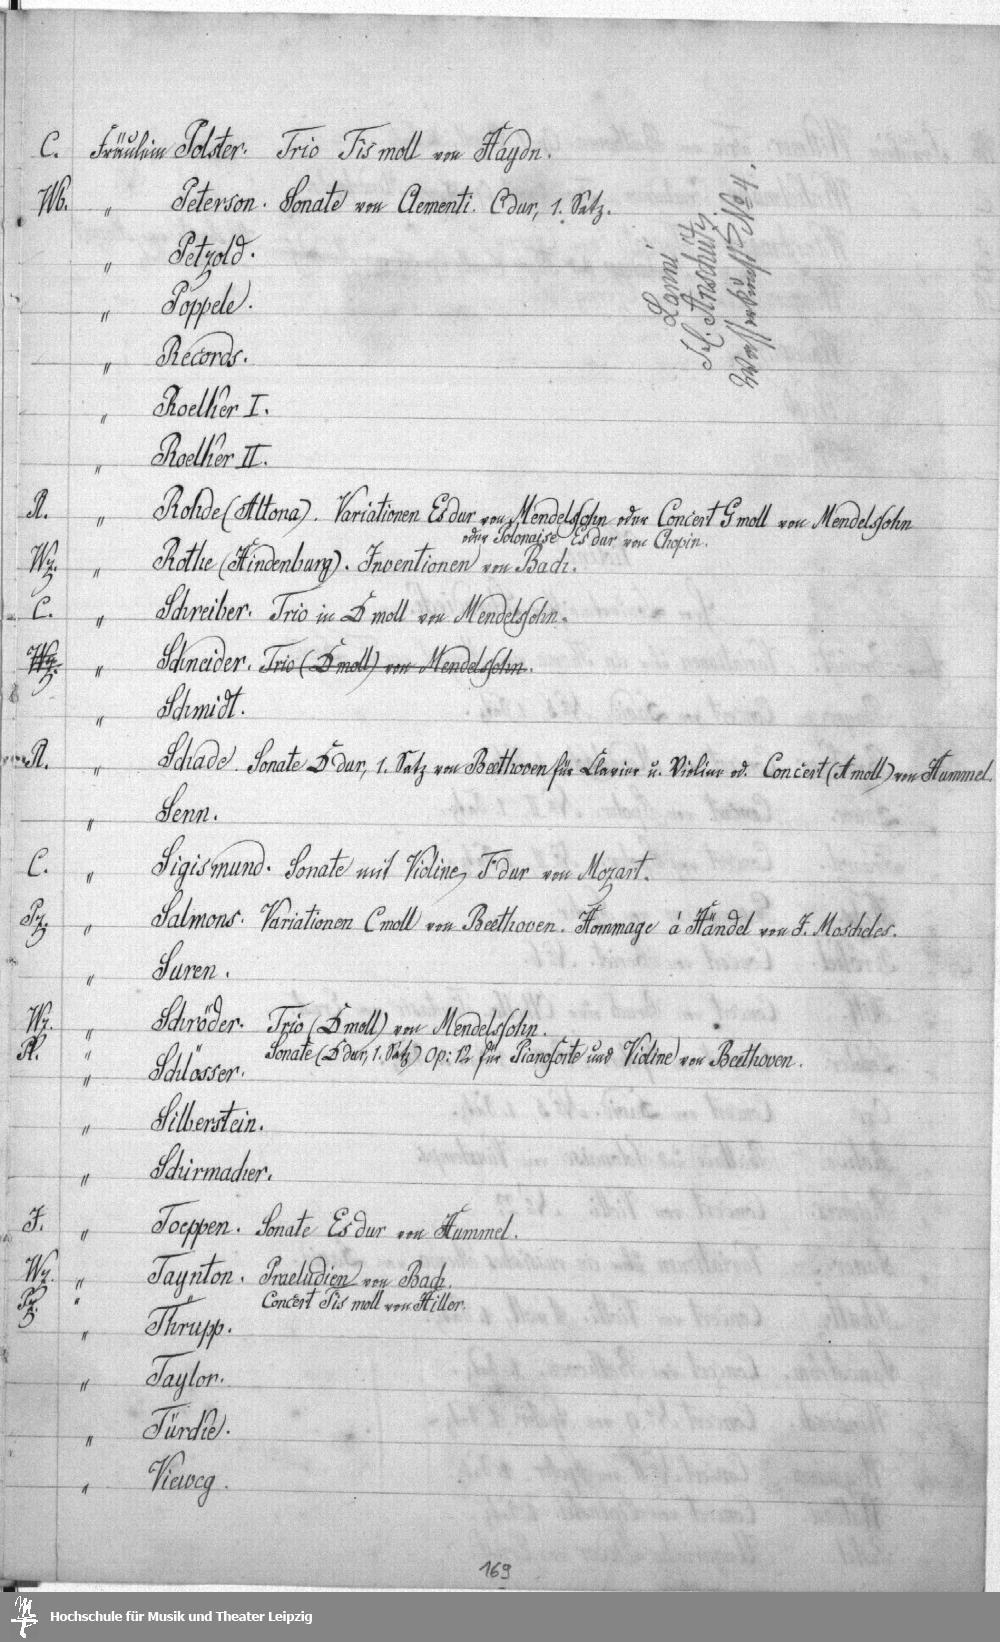 C. Fräulein Polster. Trio Fis moll von Haydn.
Wb. " Peterson. Sonate von Clementi. C dur, 1. Satz.
" Petzold.
" Poppele.
" Records.
" Roelker I.
" Roelker II.
Lanni
Fr. Anschütz
No 4.
R. " Rohde (Altona). Variationen Es dur von Mendelssohn oder Concert G moll von Mendelssohn
oder Polonaise Es dur von Chopin.
Wz. " Rothe (Hindenburg). Inventionen von Bach.
C. " Schreiber. Trio in D moll von Mendelssohn.
Wz. " Schneider. Trio (D moll) von Mendelssohn.
" Schmidt.
R. " Schade. Sonate D dur, 1. Satz von Beethoven für Clavier u. Violine od. Concert (A moll) von Hummel.
" Senn.
C. " Sigismund. Sonate mit Violine, F dur von Mozart.
Pz. " Salmons. Variationen C moll von Beethoven. Hommage á Händel von J. Moscheles.
" Suren.
Wz. " Schröder. Trio (D moll) von Mendelssohn.
R. " Schlösser. Sonate (D dur, 1. Satz) Op: 12 für Pianoforte und Violine von Beethoven.
" Silberstein.
" Schirmacher.
J. " Toeppen. Sonate Es dur von Hummel.
Wz. " Taynton. Praeludien von Bach.
Pz. " Concert Fis moll von Hiller.
" Thrupp.
" Taylor.
" Türcke.
" Vieweg.
169
Hochschule für Musik und Theater Leipzig